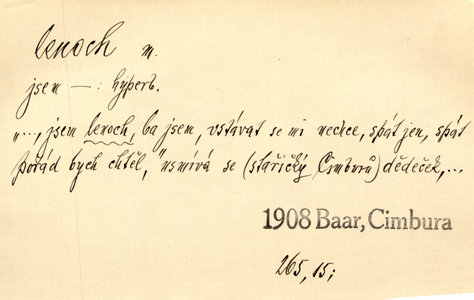 lenoch m.
jsem —: hyperb.
„..., jsem lenoch, ba jsem, vstávat se mi nechce, spát jen, spát
pořád bych chtěl,“ usmívá se (stařičký Cimburů) dědeček,...
1908 Baar, Cimbura
265, 15;